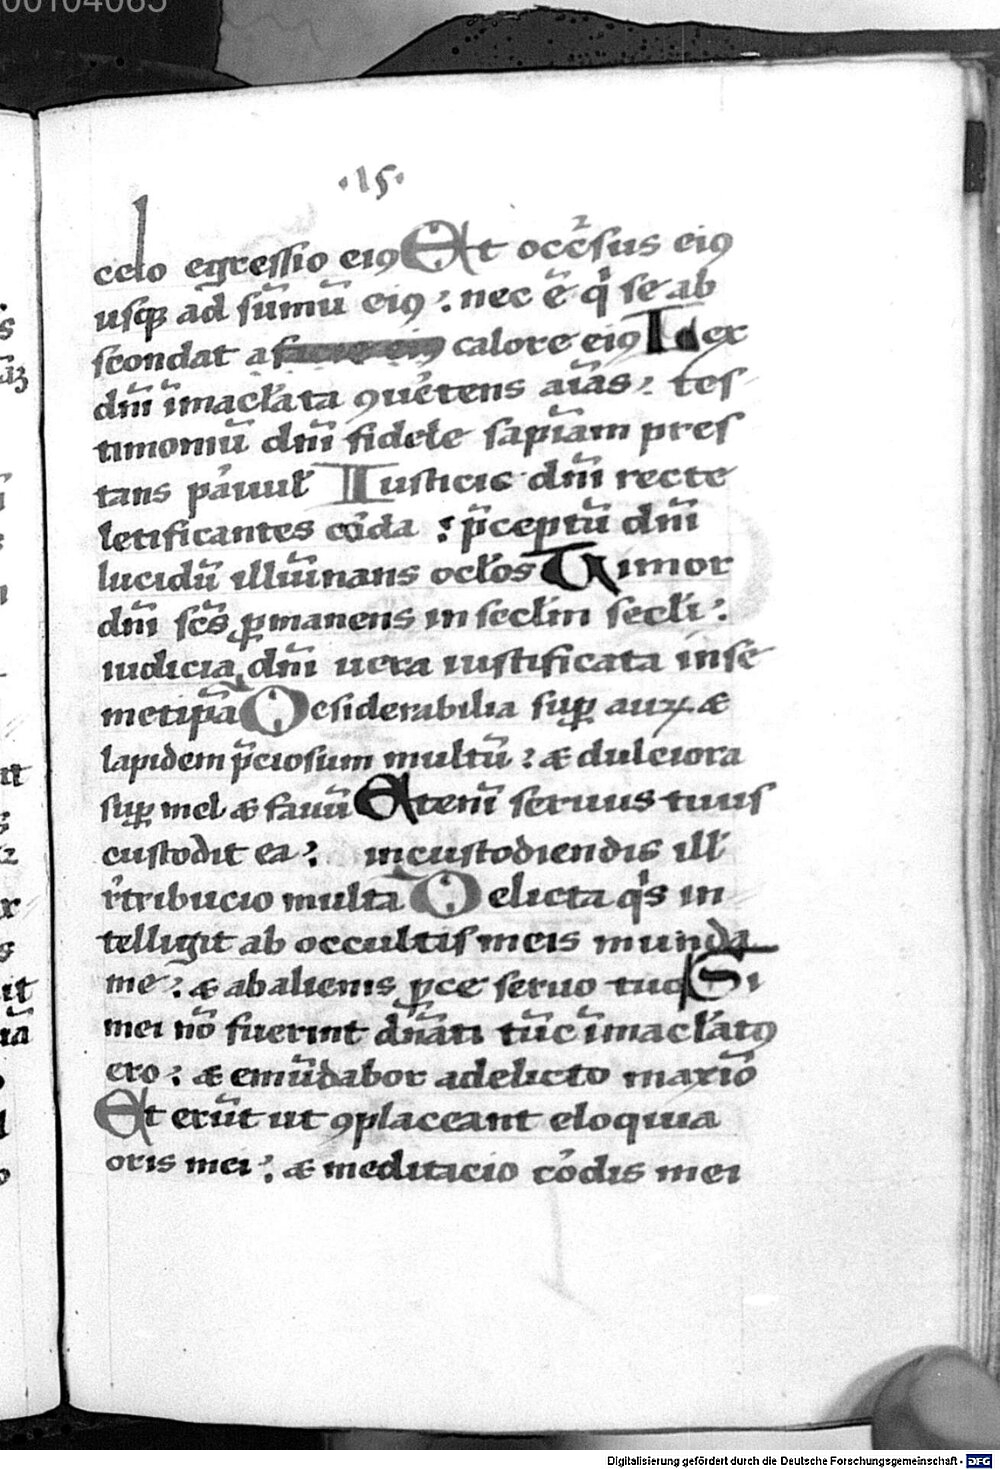 00104085
·15·
celo egressio eiꝰ Et occ̃sus eiꝰ
usqꝫ ad su̅mu̅ eiꝰ : nec e̅ qͥ se ab
scondat a facie eiꝰ calore eiꝰ Lex
dn̅i i̅macl̅ata ꝯue̅tens ai̅as : tes
timoniu̅ dn̅i fidele sapi̅am pres
tans pa̅uul̅ Iusticie dn̅i recte
letificantes co̅da : p̅ceptu̅ dn̅i
lucidu̅ illu̅inans ocl̅os Timor
dn̅i sc̅s ꝑmanens in secl̅m secl̅i :
iudicia dn̅i uera iustificata in se
metip̅a Desiderabilia suꝑ auꝝ &
lapidem p̅ciosum multu̅ : & dulciora
suꝑ mel & fauu̅ Eteni̅ seruus tuus
custodit ea : in custodiendis ill̅
r̅tribucio multa̅ Delicta qͥs in
telligit ab occultis meis munda
me : & ab alienis ꝑce seruo tuo Si
mei no̅ fuerint dn̅ati tu̅c i̅macl̅atꝰ
ero : & emu̅dabor a delicto maxi̅o
Et eru̅t ut ꝯplaceant eloquia
oris mei : & meditacio co̅dis mei
Digitalisierung gefördert durch die Deutsche Forschungsgemeinschaft - DFG